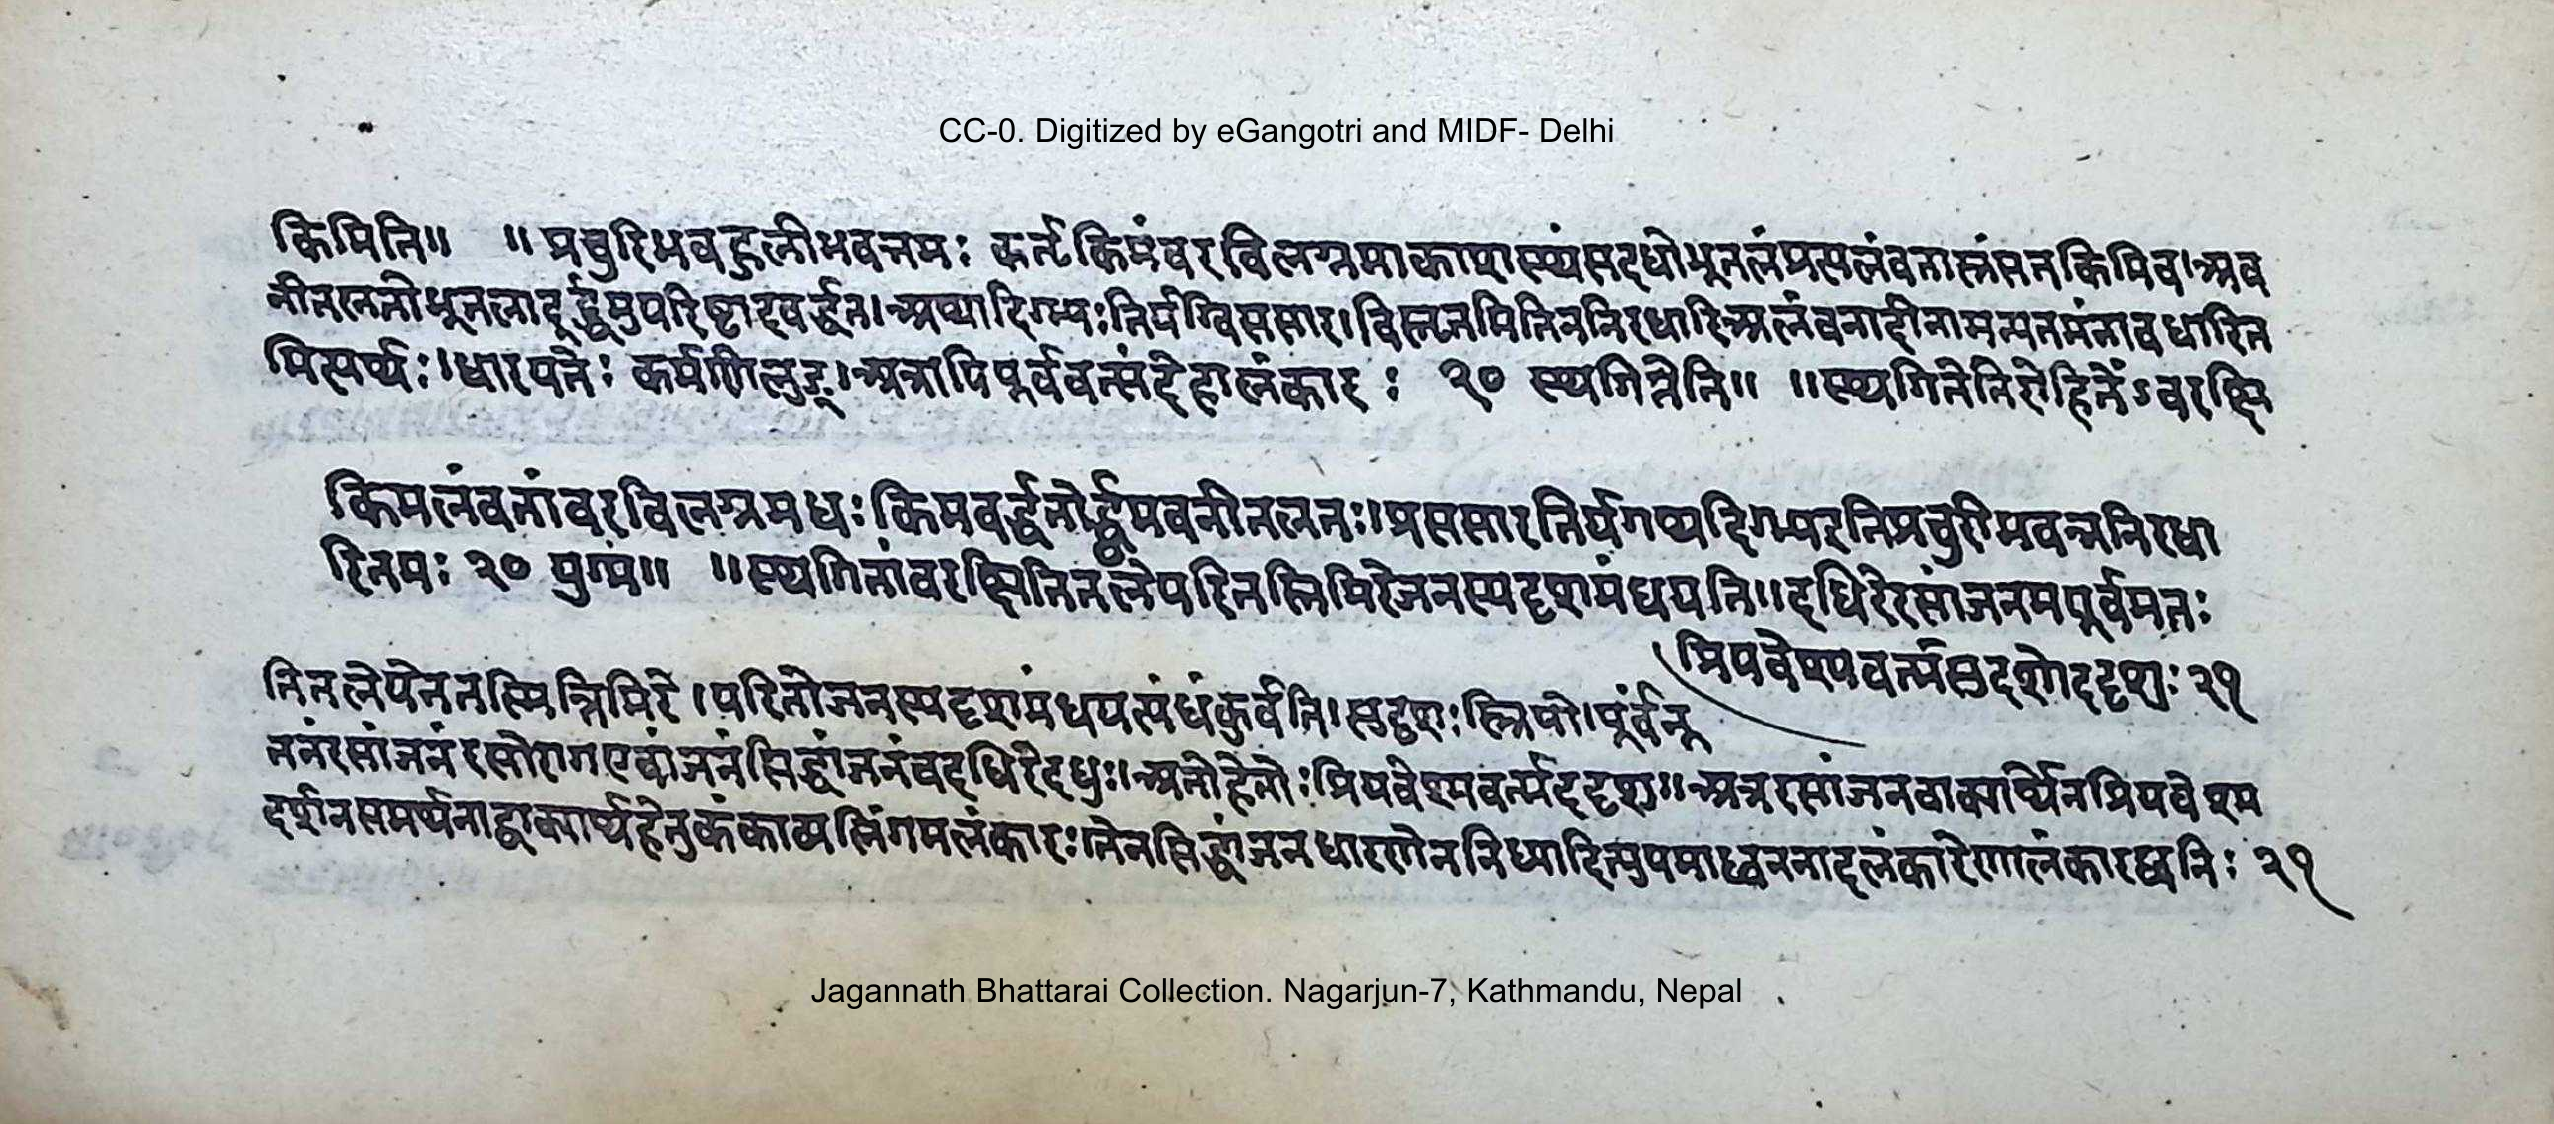 CC-0. Digitized by eGangotri and MIDF- Delhi
किमिति॥ ॥प्रचुरिभवद्बुलीभवत्तमः कर्तृकिमंवरविलग्नमाकाशस्थंसदधोभूतलंप्रसलंवतास्रंसतकिमिव।अव
नीतलततोभूतलादूर्द्ध्वमुपरिष्टादवर्द्धत।अथादिग्भ्यःतिर्यग्विससार।विस्तृतमितितनिरधारिअलंवनादीनामन्यतमंनावधारित
मित्यर्थः।धारयतेः कर्मणिलुङ्।अत्रापिपूर्ववत्संदेहालंकारः २० स्थगितेति॥ ॥स्थगितेतिरोहितेंऽवरक्षि
किमलंवतांवरविलग्नमधःकिमवर्द्धतोर्द्ध्वमवनीतलतः।प्रससारतिर्यगथदिग्भ्यइतिप्रचुरीभवन्ननिरधा
रितमः २० युग्मं॥ ॥स्थगितांवरक्षितितलेपरितस्तिमिरेजनस्यदृशमंधयति॥दधिरेरसांजनमपूर्वमतः
।प्रियवेश्मवर्त्मसुदृशोददृशुः २१
तितलेयेनतस्मिंतिमिरे।परितोजनस्यदृशमंधयत्यंधंकुर्वति।सुदृशःस्त्रियो।पूर्वंनू
तनंरसांजनंरसोरागएवांजनंसिद्धांजनंवदधिरेदधुः।अतोहेतोःप्रियवेश्मवर्त्मददृशु॥अत्ररसांजनवाक्यार्थेनप्रियवेश्म
दर्शनसमर्थनाद्वाक्यार्थहेतुकंकाव्यलिंगमलंकारः।तेनसिद्धांजनधारणेननिध्यादित्युपमाध्वननादलंकारेणालंकारध्वनिः २१
Jagannath Bhattarai Collection. Nagarjun-7, Kathmandu, Nepal